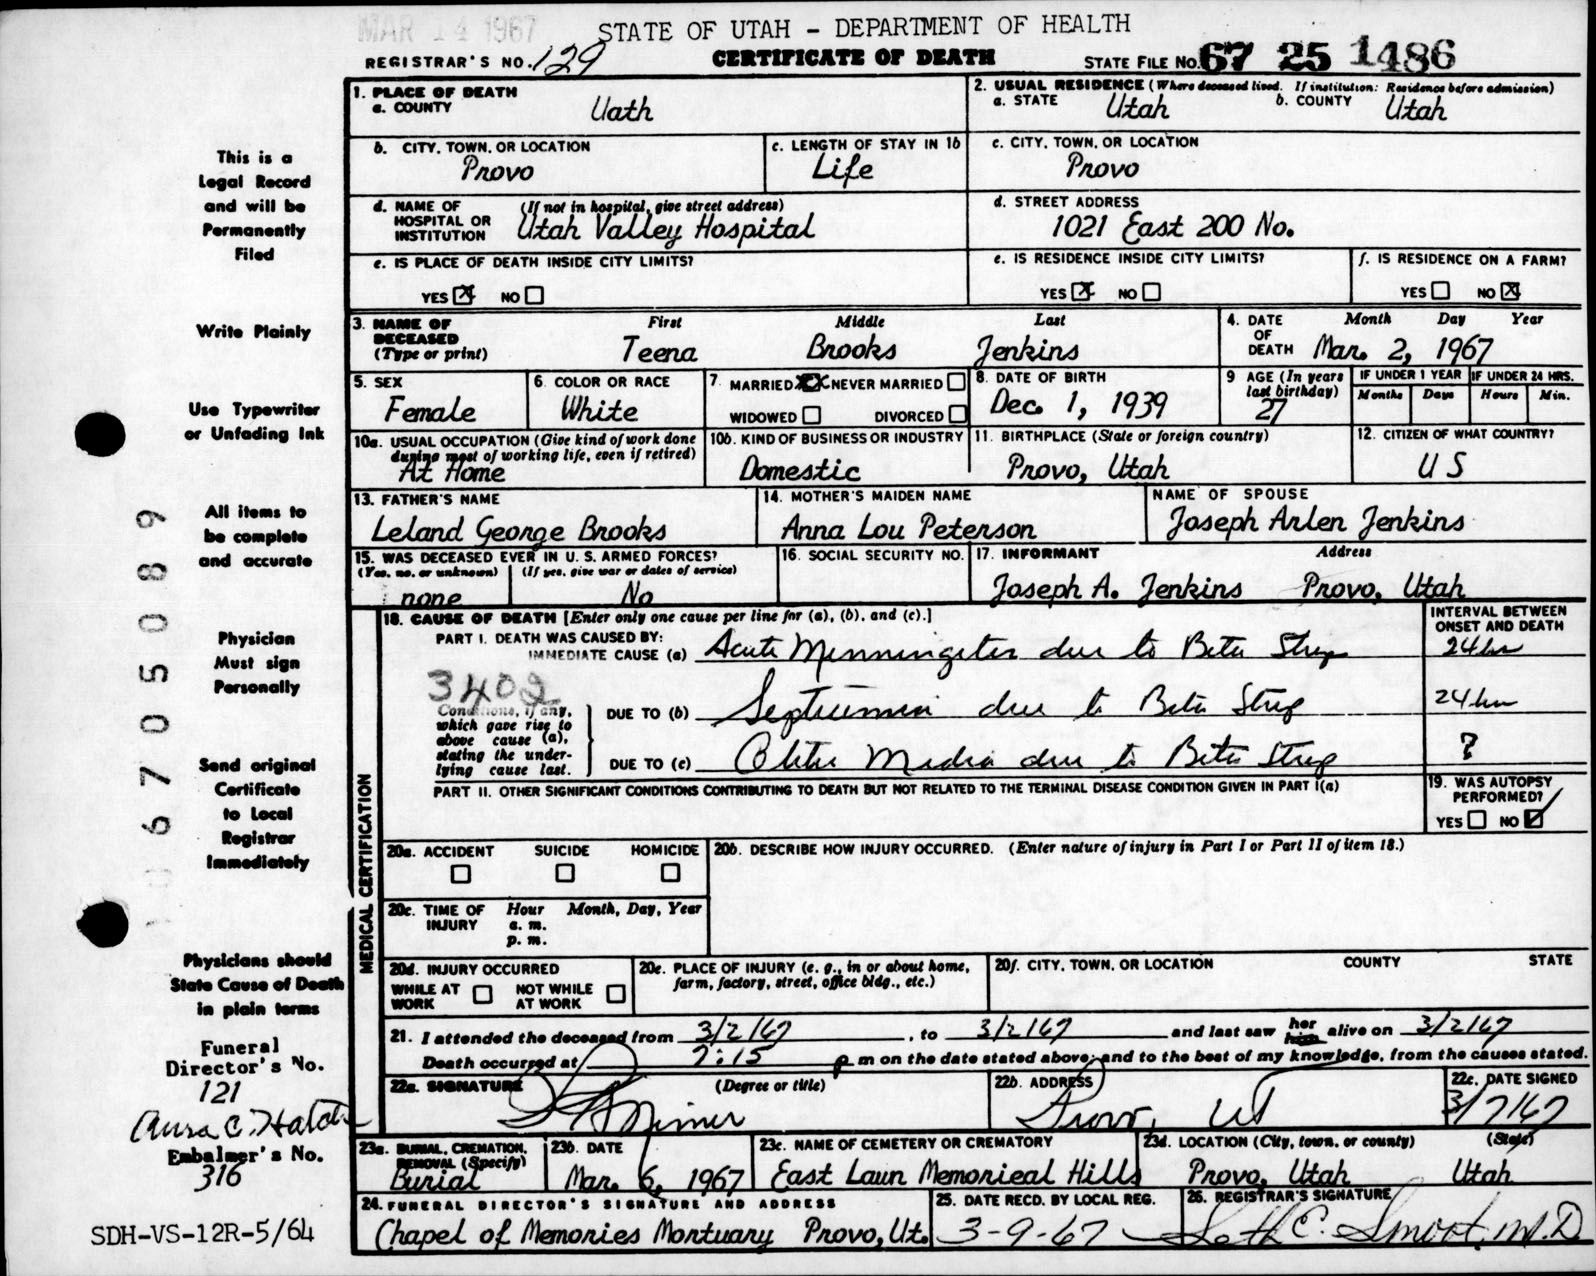 MAR 14 1967
STATE OF UTAH - DEPARTMENT OF HEALTH
REGISTRAR'S NO. 129 CERTIFICATE OF DEATH STATE FILE NO. 67 25 1486
1. PLACE OF DEATH
a. COUNTY Uath
2. USUAL RESIDENCE (Where deceased lived. If institution: Residence before admission)
a. STATE Utah b. COUNTY Utah
b. CITY, TOWN, OR LOCATION
Provo
c. LENGTH OF STAY IN 1b
Life
c. CITY, TOWN, OR LOCATION
Provo
d. NAME OF HOSPITAL OR INSTITUTION (If not in hospital, give street address)
Utah Valley Hospital
d. STREET ADDRESS
1021 East 200 No.
e. IS PLACE OF DEATH INSIDE CITY LIMITS?
YES X NO
e. IS RESIDENCE INSIDE CITY LIMITS?
YES X NO
f. IS RESIDENCE ON A FARM?
YES NO X
3. NAME OF DECEASED (Type or print)
First Middle Last
Teena Brooks Jenkins
4. DATE OF DEATH Month Day Year
Mar. 2, 1967
5. SEX
Female
6. COLOR OR RACE
White
7. MARRIED X NEVER MARRIED
WIDOWED DIVORCED
8. DATE OF BIRTH
Dec. 1, 1939
9 AGE (In years last birthday)
27
IF UNDER 1 YEAR IF UNDER 24 HRS.
Months Days Hours Min.
10a. USUAL OCCUPATION (Give kind of work done during most of working life, even if retired)
At Home
10b. KIND OF BUSINESS OR INDUSTRY
Domestic
11. BIRTHPLACE (State or foreign country)
Provo, Utah
12. CITIZEN OF WHAT COUNTRY?
U S
13. FATHER'S NAME
Leland George Brooks
14. MOTHER'S MAIDEN NAME
Anna Lou Peterson
NAME OF SPOUSE
Joseph Arlen Jenkins
15. WAS DECEASED EVER IN U. S. ARMED FORCES?
(Yes, no, or unknown) (If yes, give war or dates of service)
none No
16. SOCIAL SECURITY NO.
17. INFORMANT Address
Joseph A. Jenkins Provo, Utah
MEDICAL CERTIFICATION
18. CAUSE OF DEATH [Enter only one cause per line for (a), (b), and (c).]
INTERVAL BETWEEN ONSET AND DEATH
PART I. DEATH WAS CAUSED BY:
IMMEDIATE CAUSE (a) Acute Menningitis due to Beta Strep 24 hr
3402
Conditions, if any, which gave rise to above cause (a), stating the underlying cause last.
DUE TO (b) Septicemia due to Beta Strep 24 hr
DUE TO (c) Otitis Media due to Beta Strep ?
PART II. OTHER SIGNIFICANT CONDITIONS CONTRIBUTING TO DEATH BUT NOT RELATED TO THE TERMINAL DISEASE CONDITION GIVEN IN PART I(a)
19. WAS AUTOPSY PERFORMED?
YES NO
20a. ACCIDENT SUICIDE HOMICIDE
20b. DESCRIBE HOW INJURY OCCURRED. (Enter nature of injury in Part I or Part II of item 18.)
20c. TIME OF INJURY Hour Month, Day, Year
a. m.
p. m.
20d. INJURY OCCURRED
WHILE AT WORK NOT WHILE AT WORK
20e. PLACE OF INJURY (e. g., in or about home, farm, factory, street, office bldg., etc.)
20f. CITY, TOWN, OR LOCATION COUNTY STATE
21. I attended the deceased from 3/2/67, to 3/2/67 and last saw her him alive on 3/2/67
Death occurred at 7:15 p m on the date stated above; and to the best of my knowledge, from the causes stated.
22a. SIGNATURE (Degree or title)
22b. ADDRESS
Provo, Ut
22c. DATE SIGNED
3/7/67
23a. BURIAL, CREMATION, REMOVAL (Specify)
Burial
23b. DATE
Mar. 6, 1967
23c. NAME OF CEMETERY OR CREMATORY
East Laun Memorieal Hills
23d. LOCATION (City, town, or county) (State)
Provo, Utah Utah
24. FUNERAL DIRECTOR'S SIGNATURE AND ADDRESS
Chapel of Memories Montuary Provo, Ut.
25. DATE RECD. BY LOCAL REG.
3-9-67
26. REGISTRAR'S SIGNATURE
Seth E. Smoot, M.D.
This is a
Legal Record
and will be
Permanently
Filed
Write Plainly
Use Typewriter
or Unfading Ink
All items to
be complete
and accurate
Physician
Must sign
Personally
Send original
Certificate
to Local
Registrar
Immediately
Physicians should
State Cause of Death
in plain terms
Funeral
Director's No.
121
Embalmer's No.
316
SDH-VS-12R-5/64
6705089